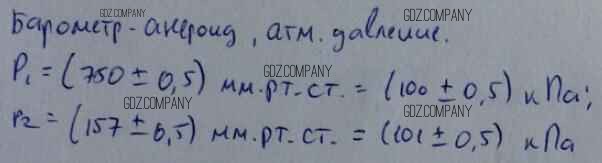 GDZ.COMPANY
Барометр-анероид, атм. давление.
GDZ.COMPANY
P₁ = (750 ± 0,5) мм.рт.ст. = (100 ± 0,5) кПа;
GDZ.COMPANY
GDZ.COMPANY
P₂ = (157 ± 0,5) мм.рт.ст. = (101 ± 0,5) кПа
GDZ.COMPANY